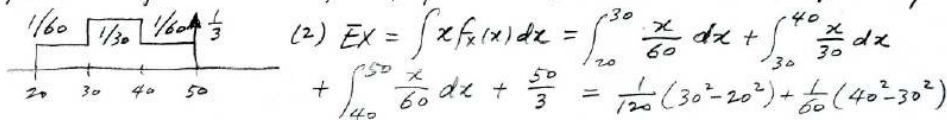 1/60 1/30 1/60 1/3
20 30 40 50
(2) EX = ∫ x fₓ(x) dx = ∫₂₀³⁰ x/60 dx + ∫₃₀⁴⁰ x/30 dx
+ ∫₄₀⁵⁰ x/60 dx + 50/3 = 1/120 (30²-20²) + 1/60 (40²-30²)